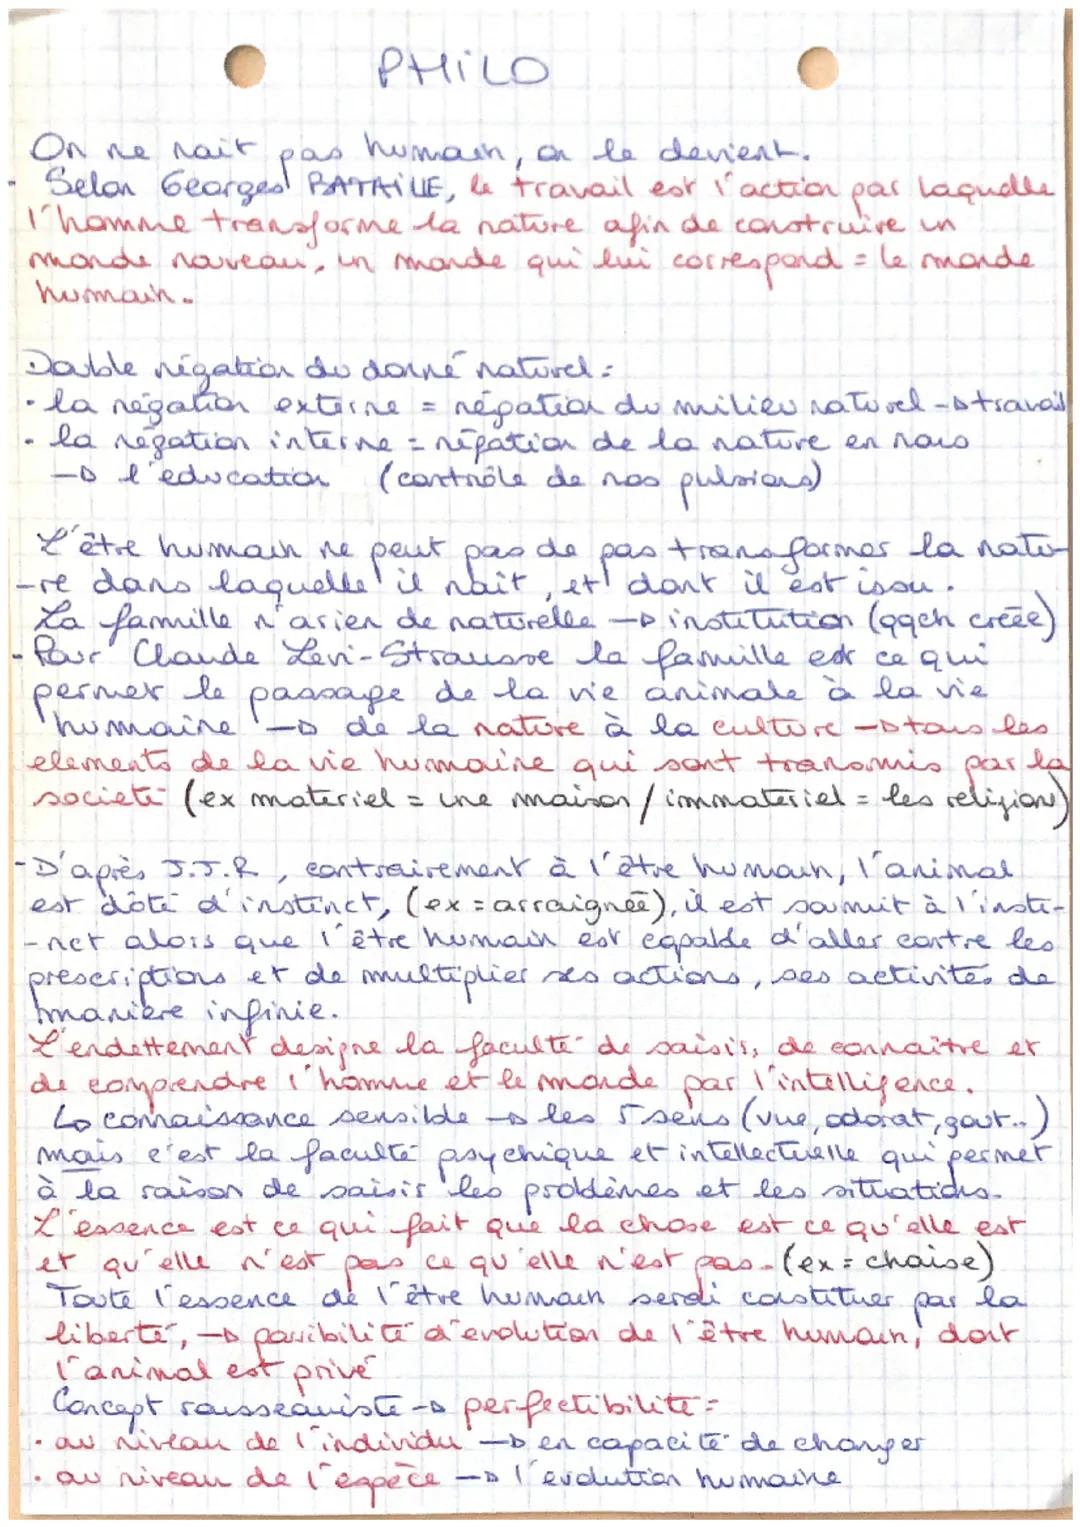 PHiLO
On ne nait pas humain, on le devient.
- Selon Georges BATAiLLE, le travail est l'action par laquelle
l'homme transforme la nature afin de construire un
monde nouveau, un monde qui lui correspond = le monde
humain.
Double négation du donné naturel :
• la négation externe = négation du milieu naturel -> travail
• la négation interne = négation de la nature en nous
-> l'education (contrôle de nos pulsions)
L'être humain ne peut pas de pas transformer la natu-
-re dans laquelle il nait, et dont il est issu.
La famille n'a rien de naturelle -> institution (qqch créée)
- Pour Claude Levi-Strausse la famille est ce qui
permet le passage de la vie animale à la vie
humaine -> de la nature à la culture -> tous les
elements de la vie humaine qui sont transmis par la
societé (ex materiel = une maison / immateriel = les religions)
- D'après J.J.R, contrairement à l'être humain, l'animal
est dôté d'instinct, (ex = arraignée), il est soumit à l'insti-
-nct alors que l'être humain est capable d'aller contre les
prescriptions et de multiplier ses actions, ses activités de
manière infinie.
L'endettement designe la faculté de saisir, de connaitre et
de comprendre l'homme et le monde par l'intelligence.
↳ connaissance sensible -> les 5 sens (vue, odorat, gout..)
mais c'est la faculté psychique et intellectuelle qui permet
à la raison de saisir les problèmes et les situations.
L'essence est ce qui fait que la chose est ce qu'elle est
et qu'elle n'est pas ce qu'elle n'est pas. (ex = chaise)
Toute l'essence de l'être humain serai constituer par la
liberté, -> possibilité d'evolution de l'être humain, dont
l'animal est privé
Concept rousseauiste -> perfectibilité :
• au niveau de l'individu -> en capacité de changer
• au niveau de l'espèce -> l'evolution humaine